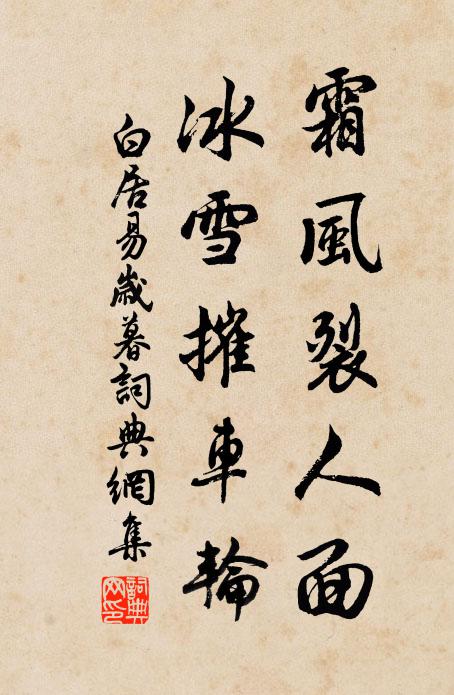 霜風裂人面
冰雪摧車輪
白居易歲暮詞典網集
詞典